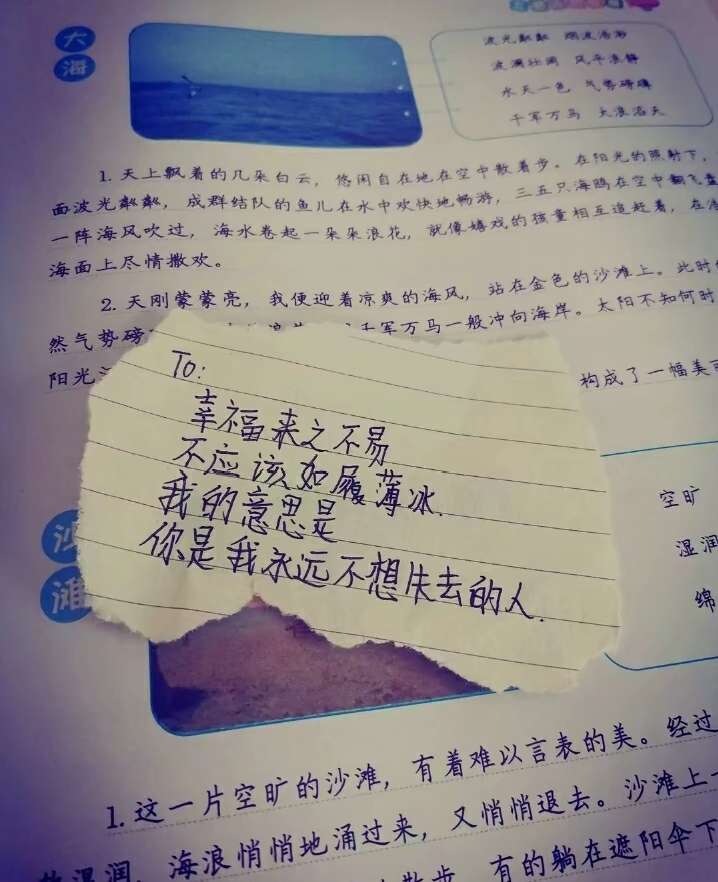 大海
波光粼粼 烟波浩渺
波澜壮阔 风平浪静
水天一色 气势磅礴
千军万马 大浪滔天
1. 天上飘着的几朵白云，悠闲自在地在空中散着步。在阳光的照射下，
面波光粼粼，成群结队的鱼儿在水中欢快地畅游，三五只海鸥在空中翻飞盘
一阵海风吹过，海水卷起一朵朵浪花，就像嬉戏的孩童相互追赶着，在
海面上尽情撒欢。
2. 天刚蒙蒙亮，我便迎着凉爽的海风，站在金色的沙滩上。此时
然气势磅 千军万马一般冲向海岸。太阳不知何时
阳光 构成了一幅美
To:
幸福来之不易
不应该如履薄冰.
我的意思是
你是我永远不想失去的人.
沙滩
空旷
湿润
绵
1. 这一片空旷的沙滩，有着难以言表的美。经过
湿润，海浪悄悄地涌过来，又悄悄退去。沙滩上
散步，有的躺在遮阳伞下